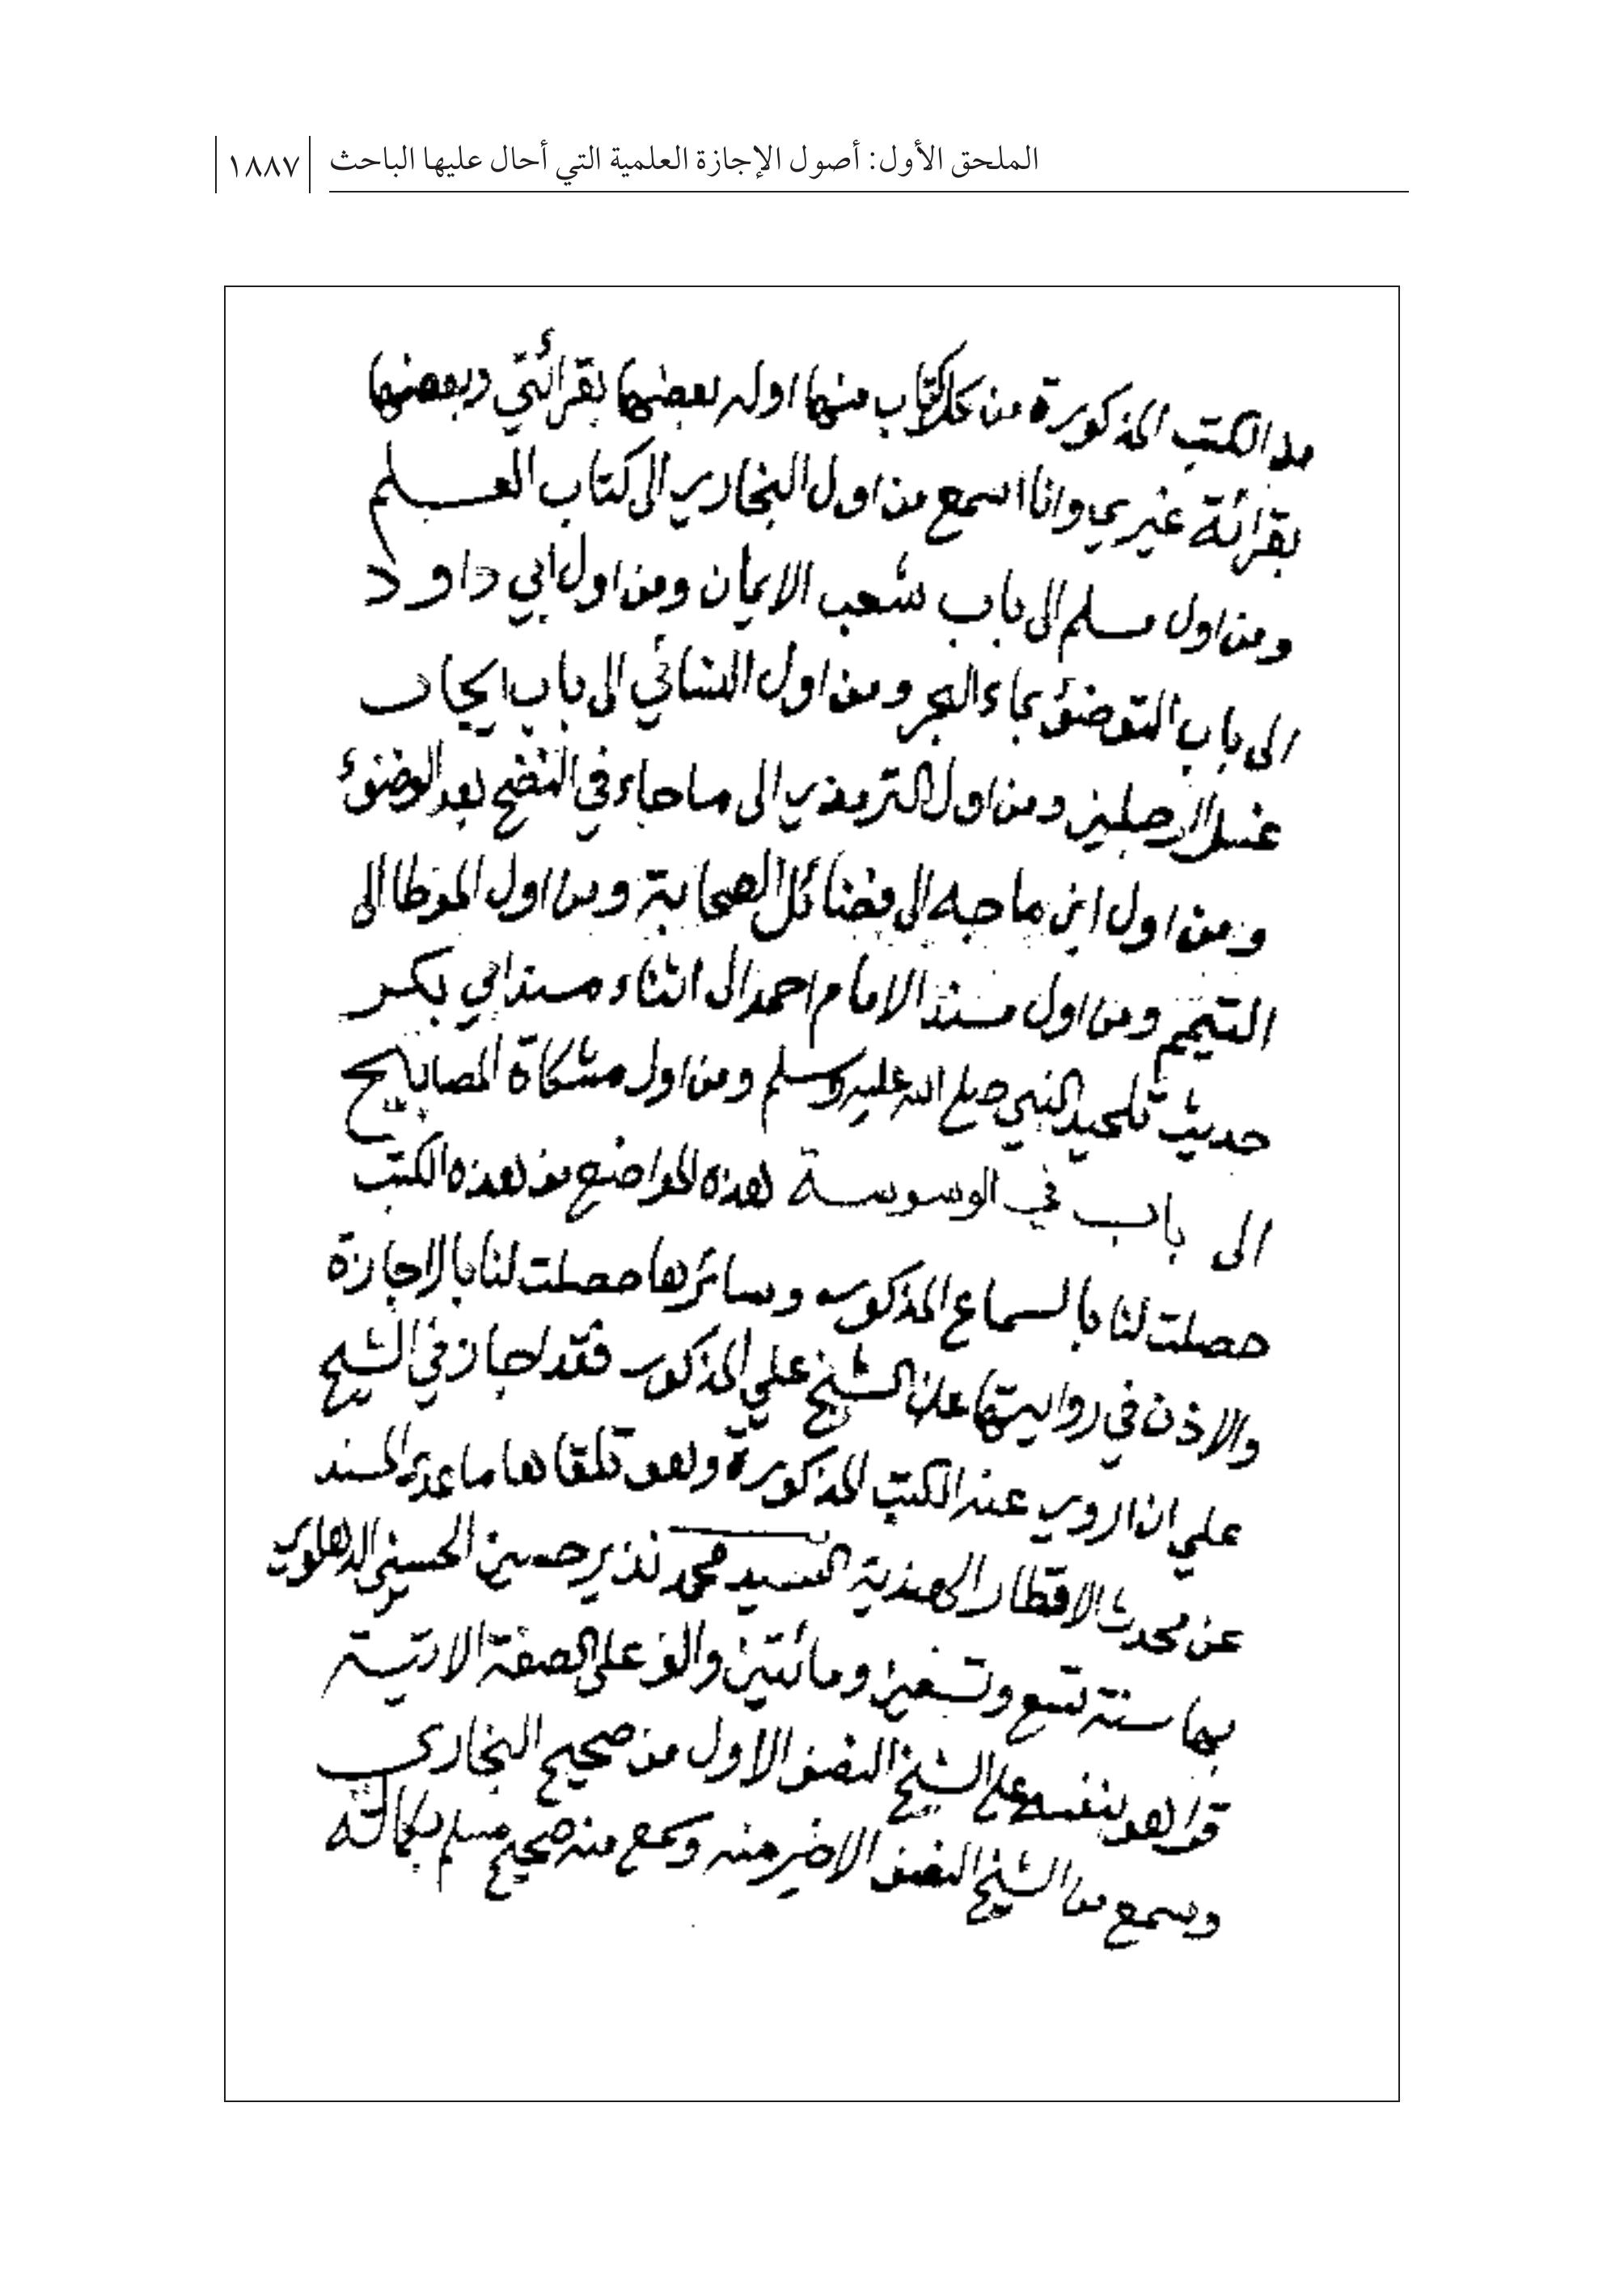 الملحق الأول: أصول الإجازة العلمية التي أحال عليها الباحث ١٨٨٧
من الكتب المذكورة من كل كتاب منها اوله بعضها بقرائتي وبعضها
بقرائة غيري وانا اسمع من اول البخاري الى كتاب العلم
ومن اول مسلم الى باب شعب الايمان ومن اول ابي داود
الى باب التوضؤ بماء البحر ومن اول النسائي الى باب ايجاب
غسل الرجلين ومن اول الترمذي الى ما جاء في النضح بعد الوضوء
ومن اول ابن ماجه الى فضائل الصحابة ومن اول الموطا الى
التيمم ومن اول مسند الامام احمد الى اثناء مسند ابي بكر
حديث تلحيد النبي صلى الله عليه وسلم ومن اول مشكاة المصابيح
الى باب في الوسوسة هذه المواضع من هذه الكتب
حصلت لنا بالسماع المذكور وسائرها حصلت لنا بالاجازة
والاذن في روايتها عن الشيخ علي المذكور فقد اجازني الشيخ
علي ان اروي عنه الكتب المذكورة وهو تلقاها ما عدى المسند
عن محدث الاقطار الهندية السيد محمد نذير حسين الحسيني الدهلوي
بها سنة تسع وتسعين ومائتين والف على الصفة الاتية
قرا هو بنفسه على الشيخ النصف الاول من صحيح البخاري
وسمع من الشيخ النصف الاخير منه وسمع منه صحيح مسلم بكماله